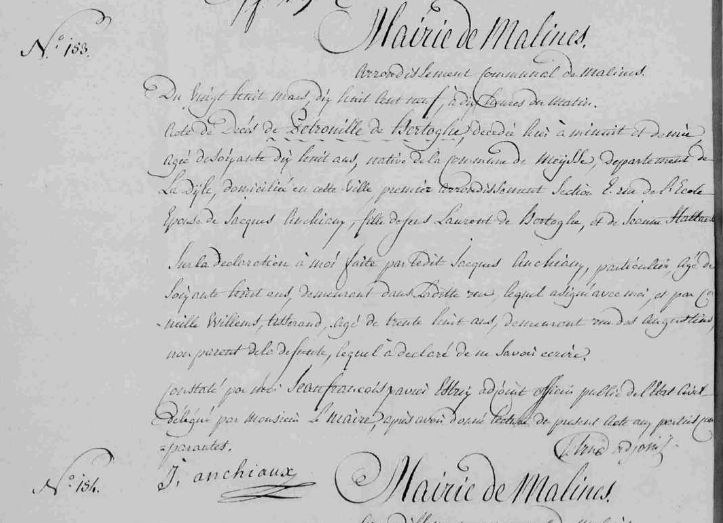 N.º 183.
Mairie de Malines.
Arrondissement Communal de Malines.
Du Vingt huit mars, dix huit cent neuf, à dix heures du Matin.
Acte de Décès de Petronille de Hertoghe, décédée hier à minuit et demie
agée de soixante dix huit ans, native de la Commune de Meysse, departement de
La Dyle, domiciliée en cette Ville, premier arrondissement Section E. rue de l'Ecole
Epouse de Jacques Anchiaux, fille de feus Laurent de Hertoghe, et de Joanne
Sur la déclaration à moi faite par ledit Jacques Anchiaux, particulier, agé de
Soixante ans, demeurant dans Ladite rue, lequel a signé avec moi, et par
mille Willems, tisserand, agé de trente huit ans, demeurant rue des Augustins,
non parent de la defunte, lequel à déclaré de ne Savoir ecrire.
Constaté par moi Jean françois xavier adjoint officier public de l'Etat Civil
délégué par Monsieur Le Maire, après avoir donné lecture du present Acte aux parties com
=parantes.
adjoint
J. anchiaux
N.º 184.
Mairie de Malines.